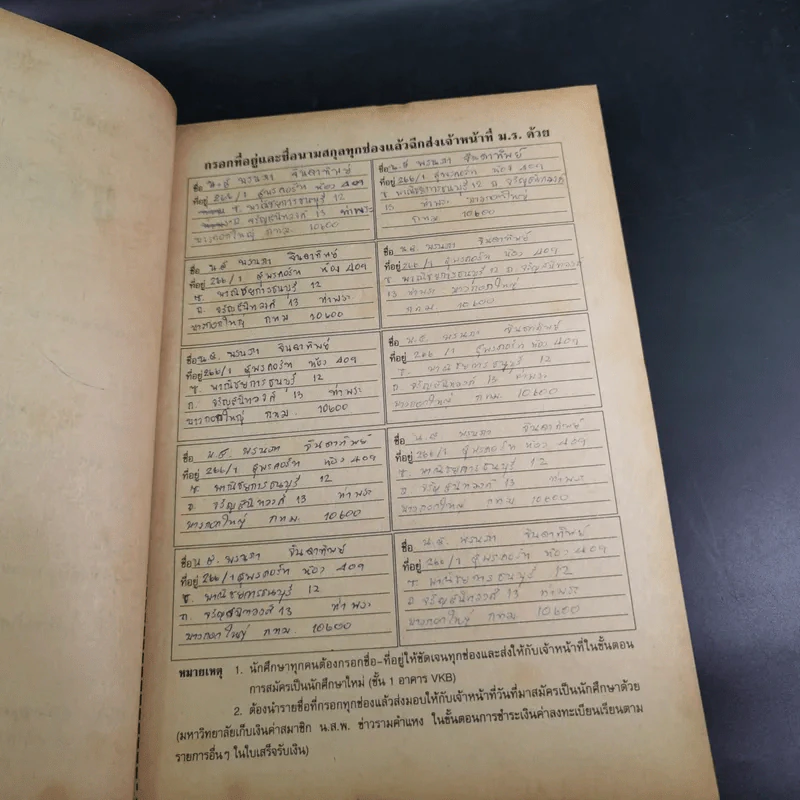 กรอกที่อยู่และชื่อนามสกุลทุกช่องแล้วฉีกส่งเจ้าหน้าที่ ม.ร. ด้วย
ชื่อ น.ส พรนภา จินดาทิพย์
ที่อยู่ 266/1 สุพรคอร์ท ห้อง 409
ซ. พาณิชยการธนบุรี 12
ถ. จรัญสนิทวงศ์ 13 ท่าพระ
บางกอกใหญ่ กทม. 10600
ชื่อ น.ส พรนภา จินดาทิพย์
ที่อยู่ 266/1 สุพรคอร์ท ห้อง 409
ซ. พาณิชยการธนบุรี 12 ถ. จรัญสนิทวงศ์
13 ท่าพระ บางกอกใหญ่
กทม 10600
ชื่อ น.ส พรนภา จินดาทิพย์
ที่อยู่ 266/1 สุพรคอร์ท ห้อง 409
ซ. พาณิชยการธนบุรี 12
ถ. จรัญสนิทวงศ์ 13 ท่าพระ
บางกอกใหญ่ กทม 10600
ชื่อ น.ส. พรนภา จินดาทิพย์
ที่อยู่ 266/1 สุพรคอร์ท ห้อง 409
ซ. พาณิชยการธนบุรี 12 ถ. จรัญสนิทวงศ์
13 ท่าพระ บางกอกใหญ่
กทม 10600
ชื่อ น.ส. พรนภา จินดาทิพย์
ที่อยู่ 266/1 สุพรคอร์ท ห้อง 409
ซ. พาณิชยการธนบุรี 12
ถ. จรัญสนิทวงศ์ 13 ท่าพระ
บางกอกใหญ่ กทม. 10600
ชื่อ น.ส. พรนภา จินดาทิพย์
ที่อยู่ 266/1 สุพรคอร์ท ห้อง 409
ซ. พาณิชยการธนบุรี 12
ถ. จรัญสนิทวงศ์ 13 ท่าพระ
บางกอกใหญ่ กทม. 10600
ชื่อ น.ส. พรนภา จินดาทิพย์
ที่อยู่ 266/1 สุพรคอร์ท ห้อง 409
ซ. พาณิชยการธนบุรี 12
ถ. จรัญสนิทวงศ์ 13 ท่าพระ
บางกอกใหญ่ กทม. 10600
ชื่อ น.ส. พรนภา จินดาทิพย์
ที่อยู่ 266/1 สุพรคอร์ท ห้อง 409
ซ. พาณิชยการธนบุรี 12
ถ. จรัญสนิทวงศ์ 13 ท่าพระ
บางกอกใหญ่ กทม. 10600
ชื่อ น.ส. พรนภา จินดาทิพย์
ที่อยู่ 266/1 สุพรคอร์ท ห้อง 409
ซ. พาณิชยการธนบุรี 12
ถ. จรัญสนิทวงศ์ 13 ท่าพระ
บางกอกใหญ่ กทม. 10600
ชื่อ น.ส. พรนภา จินดาทิพย์
ที่อยู่ 266/1 สุพรคอร์ท ห้อง 409
ซ. พาณิชยการธนบุรี 12
ถ. จรัญสนิทวงศ์ 13 ท่าพระ
บางกอกใหญ่ กทม. 10600
หมายเหตุ 1. นักศึกษาทุกคนต้องกรอกชื่อ-ที่อยู่ให้ชัดเจนทุกช่องและส่งให้กับเจ้าหน้าที่ในขั้นตอน
การสมัครเป็นนักศึกษาใหม่ (ชั้น 1 อาคาร VKB)
2. ต้องนำรายชื่อที่กรอกทุกช่องแล้วส่งมอบให้กับเจ้าหน้าที่วันที่มาสมัครเป็นนักศึกษาด้วย
(มหาวิทยาลัยเก็บเงินค่าสมาชิก น.ส.พ. ข่าวรามคำแหง ในขั้นตอนการชำระเงินค่าลงทะเบียนเรียนตาม
รายการอื่นๆ ในใบเสร็จรับเงิน)